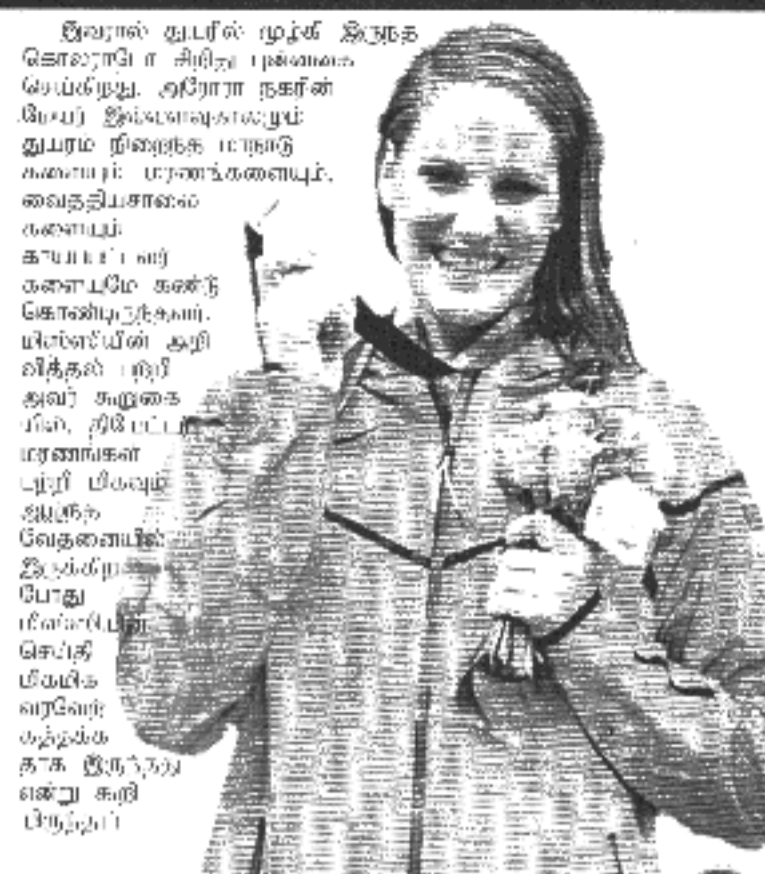 இவரால் துயரில் மூழ்கி இருந்த
கொலராடோ சிறிது புன்னகை
செய்கிறது. அரோரா நகரின்
மேயர் இவ்வளவுகாலமும்
துயரம் நிறைந்த மாநாடு
களையும் மரணங்களையும்,
வைத்தியசாலை
களையும்
காயப்பட்டவர்
களையுமே கண்டு
கொண்டிருந்தவர்.
மிஸ்ஸியின் அறி
வித்தல் பற்றி
அவர் கூறுகை
யில்,
மரணங்கள்
பற்றி மிகவும்
ஆழ்ந்த
வேதனையில்
இருக்கிற
போது
மிஸ்ஸியின்
செய்தி
மிகமிக
வரவேற்
கத்தக்க
தாக இருந்தது
என்று கூறி
யிருந்தார்